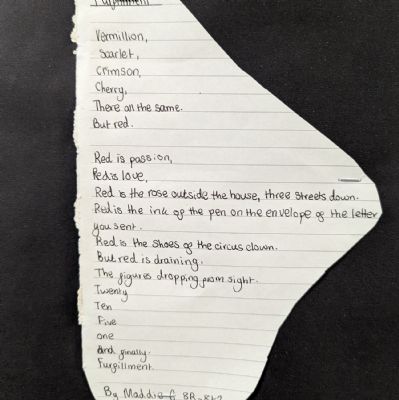 Vermillion,
Scarlet,
Crimson,
Cherry,
There all the same.
But red.
Red is passion,
Red is love,
Red is the rose outside the house, three streets down.
Red is the ink of the pen on the envelope of the letter
you sent.
Red is the shoes of the circus clown.
But red is draining.
The figures dropping from sight.
Twenty
Ten
Five
one
And finally.
Furfillment.
By Maddie